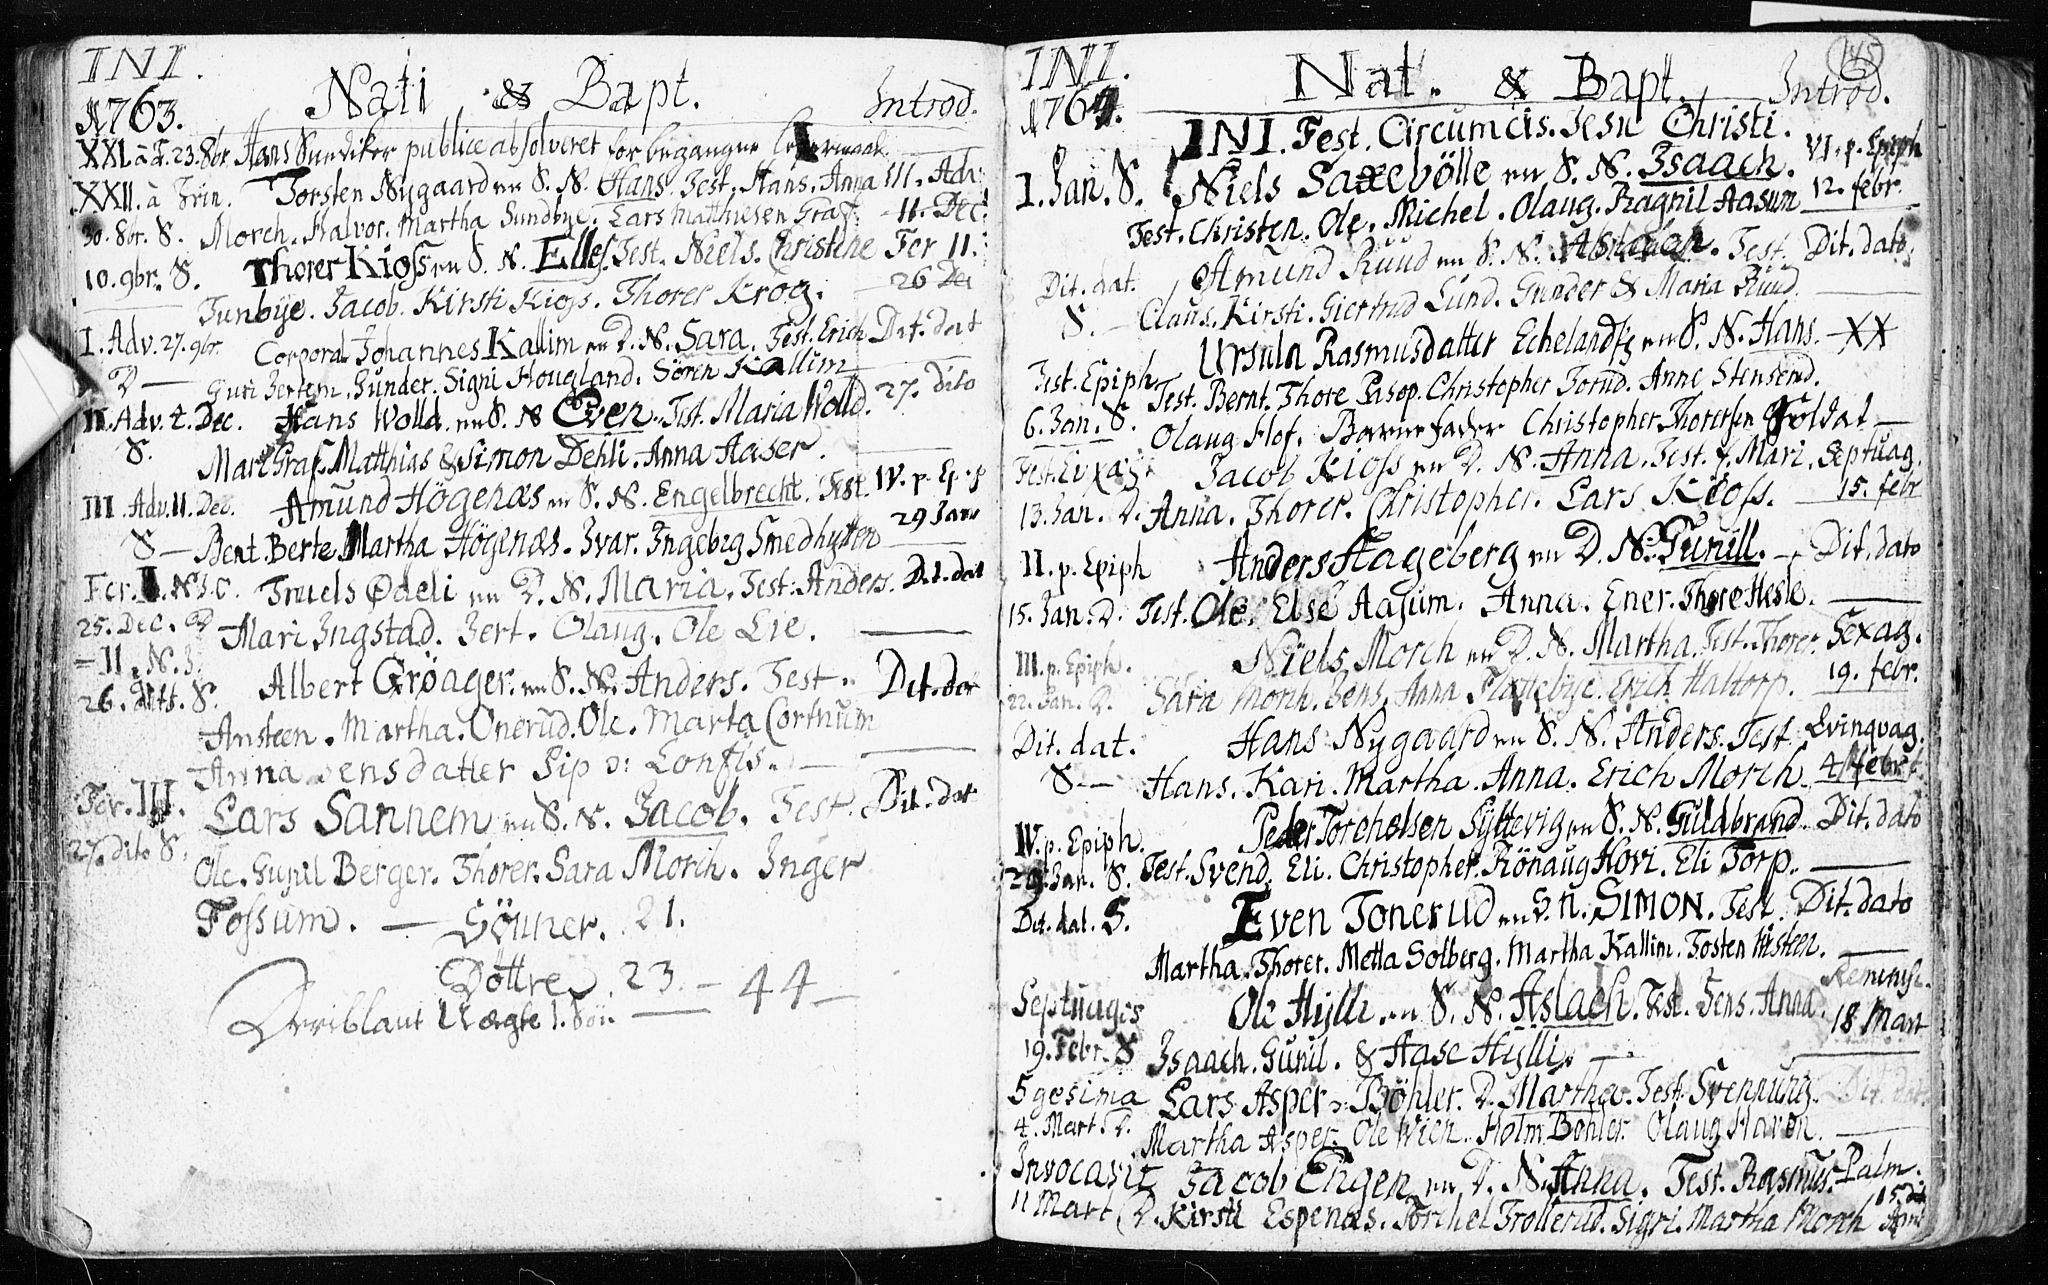 INI.
1763. Nati & Bapt. Introd.
XXI. à T. 23. 8br. Hans publice absolveret for begangne
XXII. à Trin. Torsten Nygaard en S. N. Hans. Test. Hans. Anna III. Adv.
30. 8br. S. Morch. Halvor. Martha Sundbye. Lars Matthiesen Graf. 11. Dec.
10. 9br. S. Thorer Kioss en S. N. Elles. Test. Niels. Christene Fer II.
Tunbye. Jacob. Kirsti Kioss. Thorer Krog. 26 Dec
I. Adv. 27. 9br. Corporal Johannes Kallim en D. N. Sara. Test. Erich Dit. dat
D — Guri Gunder. Signi Hougland. Sören Kallim
II. Adv. 4. Dec. Hans Wolld en S. N Even. Test. Maria Wolld. 27. dito
S. Mari Graf. Matthias & Simon Dehli. Anna Haser.
III. Adv. 11. Dec. Amund Högenæs en S. N. Engelbrecht. Test. IV. p. Ep.
S — Bent. Berte Martha Högenæs. Ivar. Ingebrg Smedhytten 29 Jan
Fer. I. N. J. C. Truels Ødeli en D. N. Maria. Test. Anders. Dit. dat
25. Dec. D Mari Ingstad. Olaug. Ole Lie.
— II. N. J.
26. S. Albert Gröager. en S. N. Anders. Test. Dit. dat
Ansteen. Martha. Onerud. Ole. Marta Cortnum
Anna Jensdatter Sip ɔ: Lonfis.
Fer. III. Lars Sannem en S. N. Jacob. Test. Dit. dat
27. dito S. Ole. Gunil Berger. Thorer. Sara Morch. Inger
Fossum. — Sönner. 21.
Döttre 23. — 44 —
Deriblant Uægte 1. Sön. —
INI. 145
1764. Nat. & Bapt. Introd.
INI. Fest. Circumcis. Jesu Christi.
1. Jan. S. Niels Saxebölle en S. N. Isaach. VI. p. Epiph
Test. Christen. Ole. Michel. Olaug. Ragnil Aasum 12. febr.
Dit. dat. Amund Ruud en S. N. Aslach. Test. Dit. dato.
S. — Claus. Kirsti. Giertrud Lund. Gunder & Maria Ruud.
Ursula Rasmusdatter en S. N. Hans. XX
Fest. Epiph. Test. Bernt. Thore Pasop. Christopher Torud. Anne Stensend.
6. Jan. S. Olaug Hof. Barnefader Christopher Thorersen Soldat —
Jacob Kioss en D. N. Anna. Test. Mari. Septuag.
13. Jan. D. Anna. Thorer. Christopher. Lars Kioss. 15. febr
II. p. Epiph Anders Hageberg en D. N. Gunill. — Dit. dato
15. Jan. D. Test. Ole. Else Aasum. Anna. Ener. Thore Hesle.
III. p. Epiph. Niels Morch en D. N. Martha. Test. Thorer. Sexag.
22. Jan. D. Sara Morch. Jens. Anna Erich Haltorp. 19. febr.
Dit. dat. Hans Nygaard en S. N. Anders. Test. Qvinqvag.
S — Hans. Kari. Martha. Anna. Erich Morch. 4
IV. p. Epiph. Peder Torchelsen Syltevig en S. N. Guldbrand. Dit. dato
29. Jan. S. Test. Svend. Eli. Christopher. Rönaug Hovi. Eli Torp.
Dit. dat. S. Even Tonerud en S. N. SIMON. Test. Dit. dato
Martha. Thorer. Metta Solberg. Martha Kallim. Tosten
Septuages Ole Hylli en S. N. Aslach. Test. Jens. Anna. Reminisc.
19. Febr. S Isaach. Gunil. & Aase Hylli. 18 Mart
5gesima Lars Asper ɔ: Böhler. D. Martha. Test. Svennung. Dit. dat.
4. Mart. D. Martha Asper. Ole Wien. Holm. Böhler. Olaug Haven.
Invocavit Jacob Engen en D. N. Anna. Test. Rasmus. Palm.
11 Mart D. Kirsti Espenæs. Torchel Trollerud. Sigri. Martha Morch 15. April